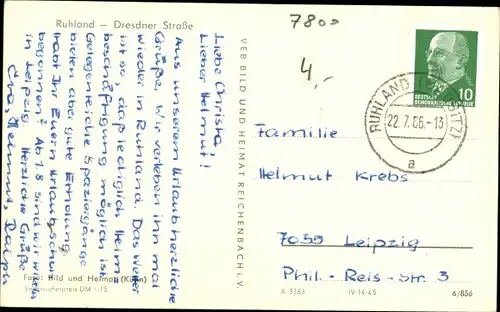 Ruhland – Dresdner Straße
Liebe Christa!
Lieber Helmut!
Aus unserem Urlaub herzliche
Grüße. Wir verleben ihn mal
wieder in Ruhland. Das Wetter
ist so, daß lediglich Heim-
beschäftigung möglich ist.
Gelegentliche Spaziergänge
bieten aber gute Erholung.
Habt Ihr Euern Urlaub schon
begonnen? Ab 1.8. sind wir wieder
in Leipzig. Herzliche Grüße
Eva, Helmut, Ralph
Foto: Bild und Heimat (Kühn)
Verbraucherpreis DM -.15
VEB BILD UND HEIMAT REICHENBACH i. V.
7800
4,-
10
DEUTSCHE
DEMOKRATISCHE REPUBLIK
RUHLAND
22.7.66.-13
a
Familie
Helmut Krebs
7055 Leipzig
Phil.-Reis-Str. 3
A 3/63 IV-14-45 6/856